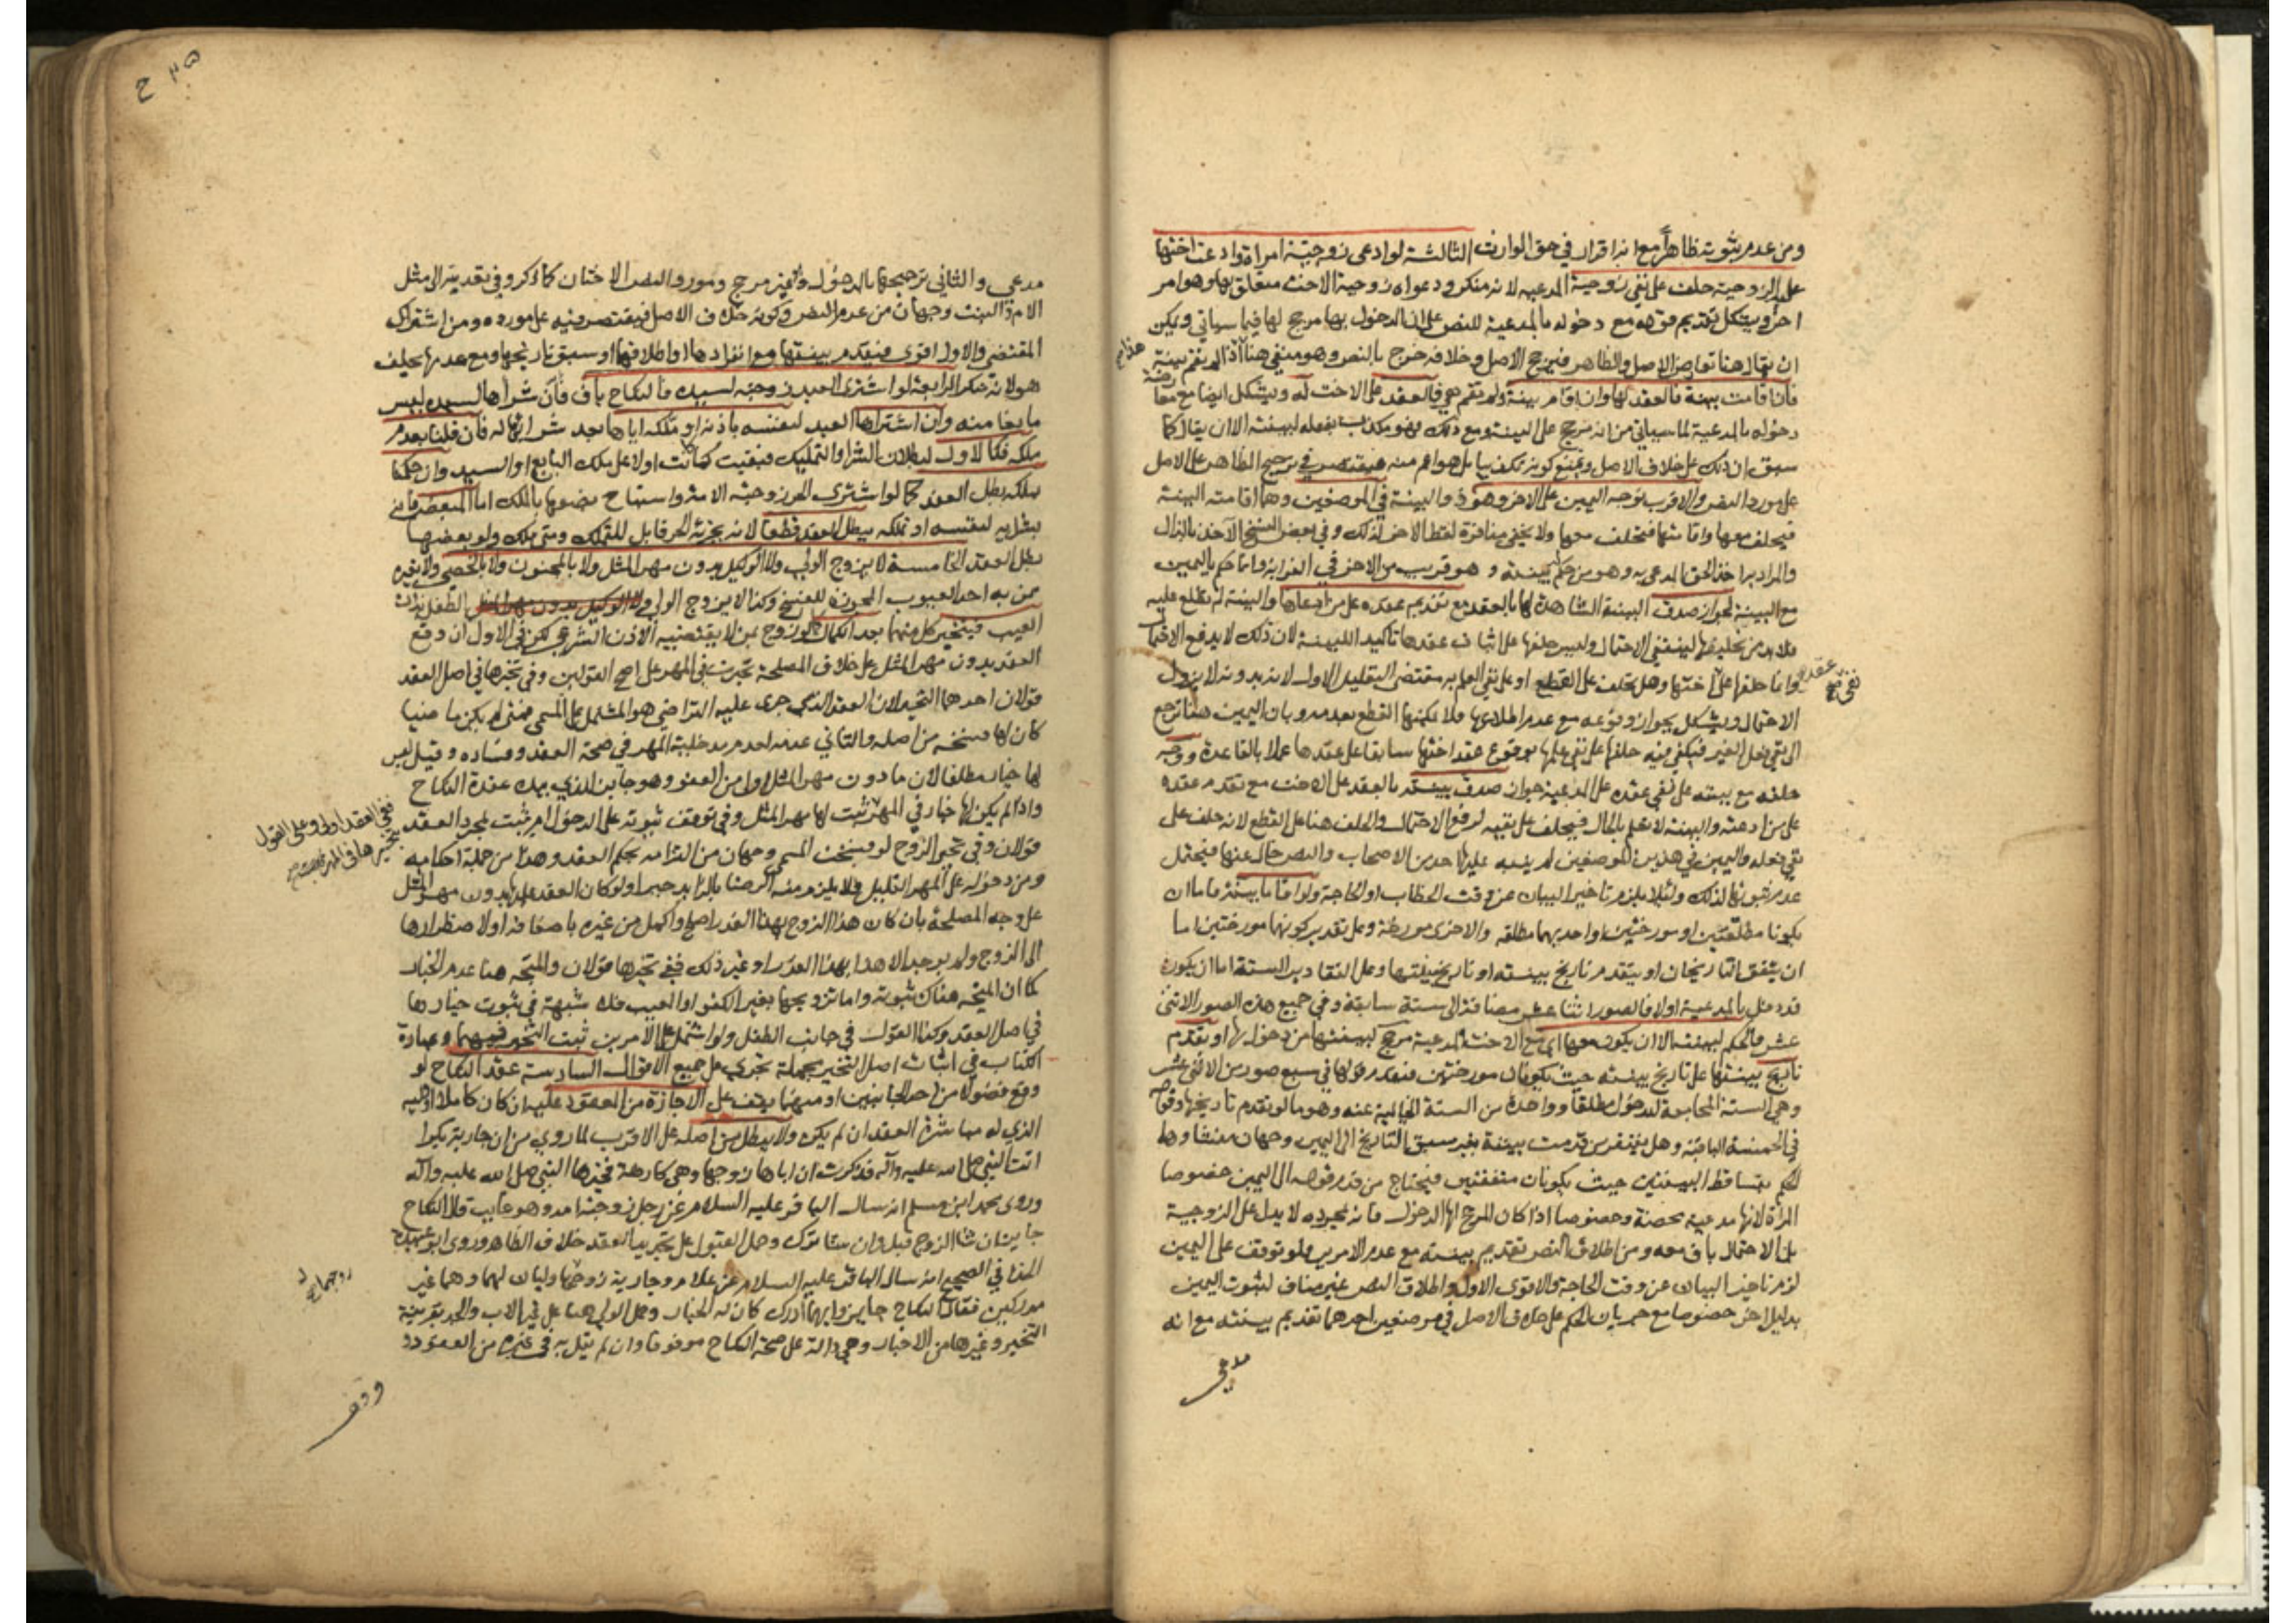 ومن عدم ثبوته ظاهراً مع انه اقرار في حق الوارث الثالثة لو ادعى زوجية امراة وادعت اختها
عليه الزوجية حلف على نفي زوجية المدعيه لانه منكر ودعواه زوجية الاخت متعلق بها وهو امر
اخر ويشكل تقديم قوله مع دخوله بالمدعية للنص على ان الدخول بها مرجح لها فيما سياتي ويمكن
ان يقال هنا تعارض الاصل والظاهر فيرجح الاصل وخلافه خرج بالنص وهو منفي هنا هذا اذا لم يقم بينة
فان اقامت بينة فالعقد لها وان اقام بينة ولم تقم هي فالعقد على الاخت له ويشكل ايضا مع معا
دخوله بالمدعية لما سياتي من انه مرجح على البينة ومع ذلك فهو مكذب بفعله لبينته الا ان يقال كما
سبق ان ذلك على خلاف الاصل ويمنع كونه تكذيبا بل هو اعم منه فيقتصر في ترجيح الظاهر على الاصل
على مورد النص والاقرب توجه اليمين على الاخر وهو ذو البينة في الموضعين وهما اقامته البينة
فيحلف معها واقامتها فتحلف معها ولا يخفى منافرة لفظ الاخر لذلك وفي بعض النسخ الآخذ بالذال
والمراد به اخذ الحق المدعى به وهو من حكم ببينته و هو قريب من الاخر في الغرابة وانما حكم باليمين
مع البينة لجواز صدق البينة الشاهدة لها بالعقد مع تقديم عقده على من ادعاها والبينة لم تطلع عليه
فلا بد من تحليفها لينتفي الاحتمال وليس حلفها على اثبات عقدها تاكيدا للبينة لان ذلك لا يدفع الاحتمال
وانما حلفها على نفي عقد اختها وهل تحلف على القطع او على نفي العلم به مقتضى التعليل الاول لانه بدونه لا يزول
الاحتمال ويشكل بجواز وقوعه مع عدم اطلاعها فلا يمكنها القطع بعدمه وبان اليمين هنا ترجع
الى نفي فعل الغير فيكفي فيه حلفها على نفي علمها بوقوع عقد اختها سابقا على عقدها عملا بالقاعدة ووجه
حلفه مع بينته على نفي عقده على المدعية جواز صدق بينته بالعقد على الاخت مع تقدم عقده
على من ادعته والبينة لا تعلم بالحال فيحلف على نفيه لرفع الاحتمال والحلف هنا على القطع لانه حلف على
نفي فعله واليمين في هذين الموضعين لم ينبه عليها احد من الاصحاب والنص خال عنها فيحتمل
عدم ثبوتها لذلك ولئلا يلزم تاخير البيان عن وقت الخطاب او الحاجة ولو اقاما بينة فاما ان
يكونا مطلقتين او مورختين او احديهما مطلقه والاخرى مورخة وعلى تقدير كونهما مورختين اما
ان يتفق التاريخان او يتقدم تاريخ بينته او تاريخ بينتها وعلى التقادير الستة اما ان يكون
قد دخل بالمدعية اولا فالصور اثنتا عشر مضافة الى ستة سابقة وفي جميع هذه الصور الاثنى
عشر فالحكم لبينته الا ان يكون معها اي مع الاخت المدعية مرجح لبينتها من دخوله بها او تقدم
تاريخ بينتها على تاريخ بينته حيث يكونان مورختين فيقدم قولها في سبع صور من الاثنى عشر
وهي الستة المجامعة للدخول مطلقا وواحدة من الستة الخالية عنه وهو ما لو تقدم تاريخها وقوله
في الخمسة الباقية وهل يفتقر من قدمت بينته بغير سبق التاريخ الى اليمين وجهان منشاوهما
الحكم بتساقط البينتين حيث يكونان متفقتين فيحتاج من قدم قوله الى اليمين خصوصا
المراة لانها مدعية محضة وخصوصا اذا كان المرجح لها الدخول فانه بمجرده لا يدل على الزوجية
بل الاحتمال باق معه ومن اطلاق النص تقديم بينته مع عدم الامرين فلو توقف على اليمين
لزم تاخير البيان عن وقت الحاجة والاقوى الاول واطلاق النص غير مناف لثبوت اليمين
بدليل اخر خصوصا مع جريان الحكم على خلاف الاصل في موضعين احدهما تقديم بينته مع انه
مدعي
مدعي والثاني ترجيحها بالدخول وهو غير مرجح ومورد النص الاختان كما ذكر وفي تعديته الى مثل
الام والبنت وجهان من عدم النص وكونه خلاف الاصل فيقتصر فيه على مورده ومن اشتراك
المقتضي والاول اقوى فتقدم بينتها مع انفرادها او اطلاقها او سبق تاريخها ومع عدمها يحلف
هو لانه منكر الرابعة لو اشترى العبد زوجته لسيده فالنكاح باق فان شراها لسيده ليس
مانعا منه وان اشتراها العبد لنفسه باذنه او ملكه اياها بعد شرائها له فان قلنا بعدم
ملكه فكالاول لبطلان الشرا والتمليك فبقيت كما كانت اولا على ملك البايع او السيد وان حكمنا
بملكه بطل العقد كما لو اشترى الحر زوجته الامة واستباح بضعها بالملك اما المبعض فانه
بشرايه لنفسه او تملكه يبطل العقد قطعا لانه بجزئه الحر قابل للتملك ومتى ملك ولو بعضها
بطل العقد الخامسة لا يزوج الولي ولا الوكيل بدون مهر المثل ولا بالمجنون ولا بالخصي ولا بغيره
ممن به احد العيوب المجوزة للفسخ وكذا لا يزوج الولي الطفل بذات
العيب فيتخير كل منهما بعد الكمال لو زوج بمن لا يقتضيه الاذن الشرعي لكن في الاول ان وقع
العقد بدون مهر المثل على خلاف المصلحة تخيرت في المهر على اصح القولين وفي تخيرها في اصل العقد
قولان احدهما التخير لان العقد الذي جرى عليه التراضي هو المشتمل على المسمى فمتى لم يكن ماضيا
كان لها فسخه من اصله والثاني عدمه لعدم مدخلية المهر في صحة العقد وفساده وقيل ليس
لها خيار مطلقا لان ما دون مهر المثل اولى من العفو وهو جايز للذي بيده عقدة النكاح
واذا لم يكن لها خيار في المهر ففي العقد اولى وعلى القول
بتخيرها في المهر يثبت لها مهر المثل وفي توقف ثبوته على الدخول ام يثبت بمجرد العقد
قولان وفي تخير الزوج لو فسخت المسمى وجهان من التزامه بحكم العقد وهذا من جملة احكامه
ومن دخوله على المهر القليل فلا يلزم منه الرضا بالزايد جبرا ولو كان العقد عليها بدون مهر المثل
على وجه المصلحة بان كان هذا الزوج بهذا القدر اصلح واكمل من غيره باضعافه او لاضطرارها
الى الزوج ولم يوجد الا هذا بهذا القدر او غير ذلك ففي تخيرها قولان والمتجه هنا عدم الخيار
كما ان المتجه هناك ثبوته واما تزويجها بغير الكفو او المعيب فلا شبهة في ثبوت خيارها
في اصل العقد وكذا القول في جانب الطفل ولو اشتمل على الامرين ثبت التخير فيهما وعبارة
الكتاب في اثبات اصل التخير مجملة تجري على جميع الاقوال السادسة عقد النكاح لو
وقع فضولا من احد الجانبين او منهما يقف على الاجازة من المعقود عليه ان كان كاملا او وليه
الذي له مباشرة العقد ان لم يكن ولا يبطل من اصله على الاقرب لما روي من ان جارية بكرا
اتت النبي صلى الله عليه وآله فذكرت ان اباها زوجها وهي كارهة فخيرها النبي صلى الله عليه وآله
وروى محمد ابن مسلم انه سال الباقر عليه السلام عن رجل زوجته امه وهو غايب قال النكاح
جايز ان شا الزوج قبل وان شا ترك وحمل القبول على تجديد العقد خلاف الظاهر وروى ابو عبيدة
الحذا في الصحيح انه سال الباقر عليه السلام عن غلام وجارية زوجهما وليان لهما وهما غير
مدركين فقال النكاح جايز وايهما ادرك كان له الخيار وحمل الولي هنا على غير الاب والجد بقرينة
التخير وغيرها من الاخبار وهي دالة على صحة النكاح موقوفا وان لم نقل به في غيره من العقود
ووقف